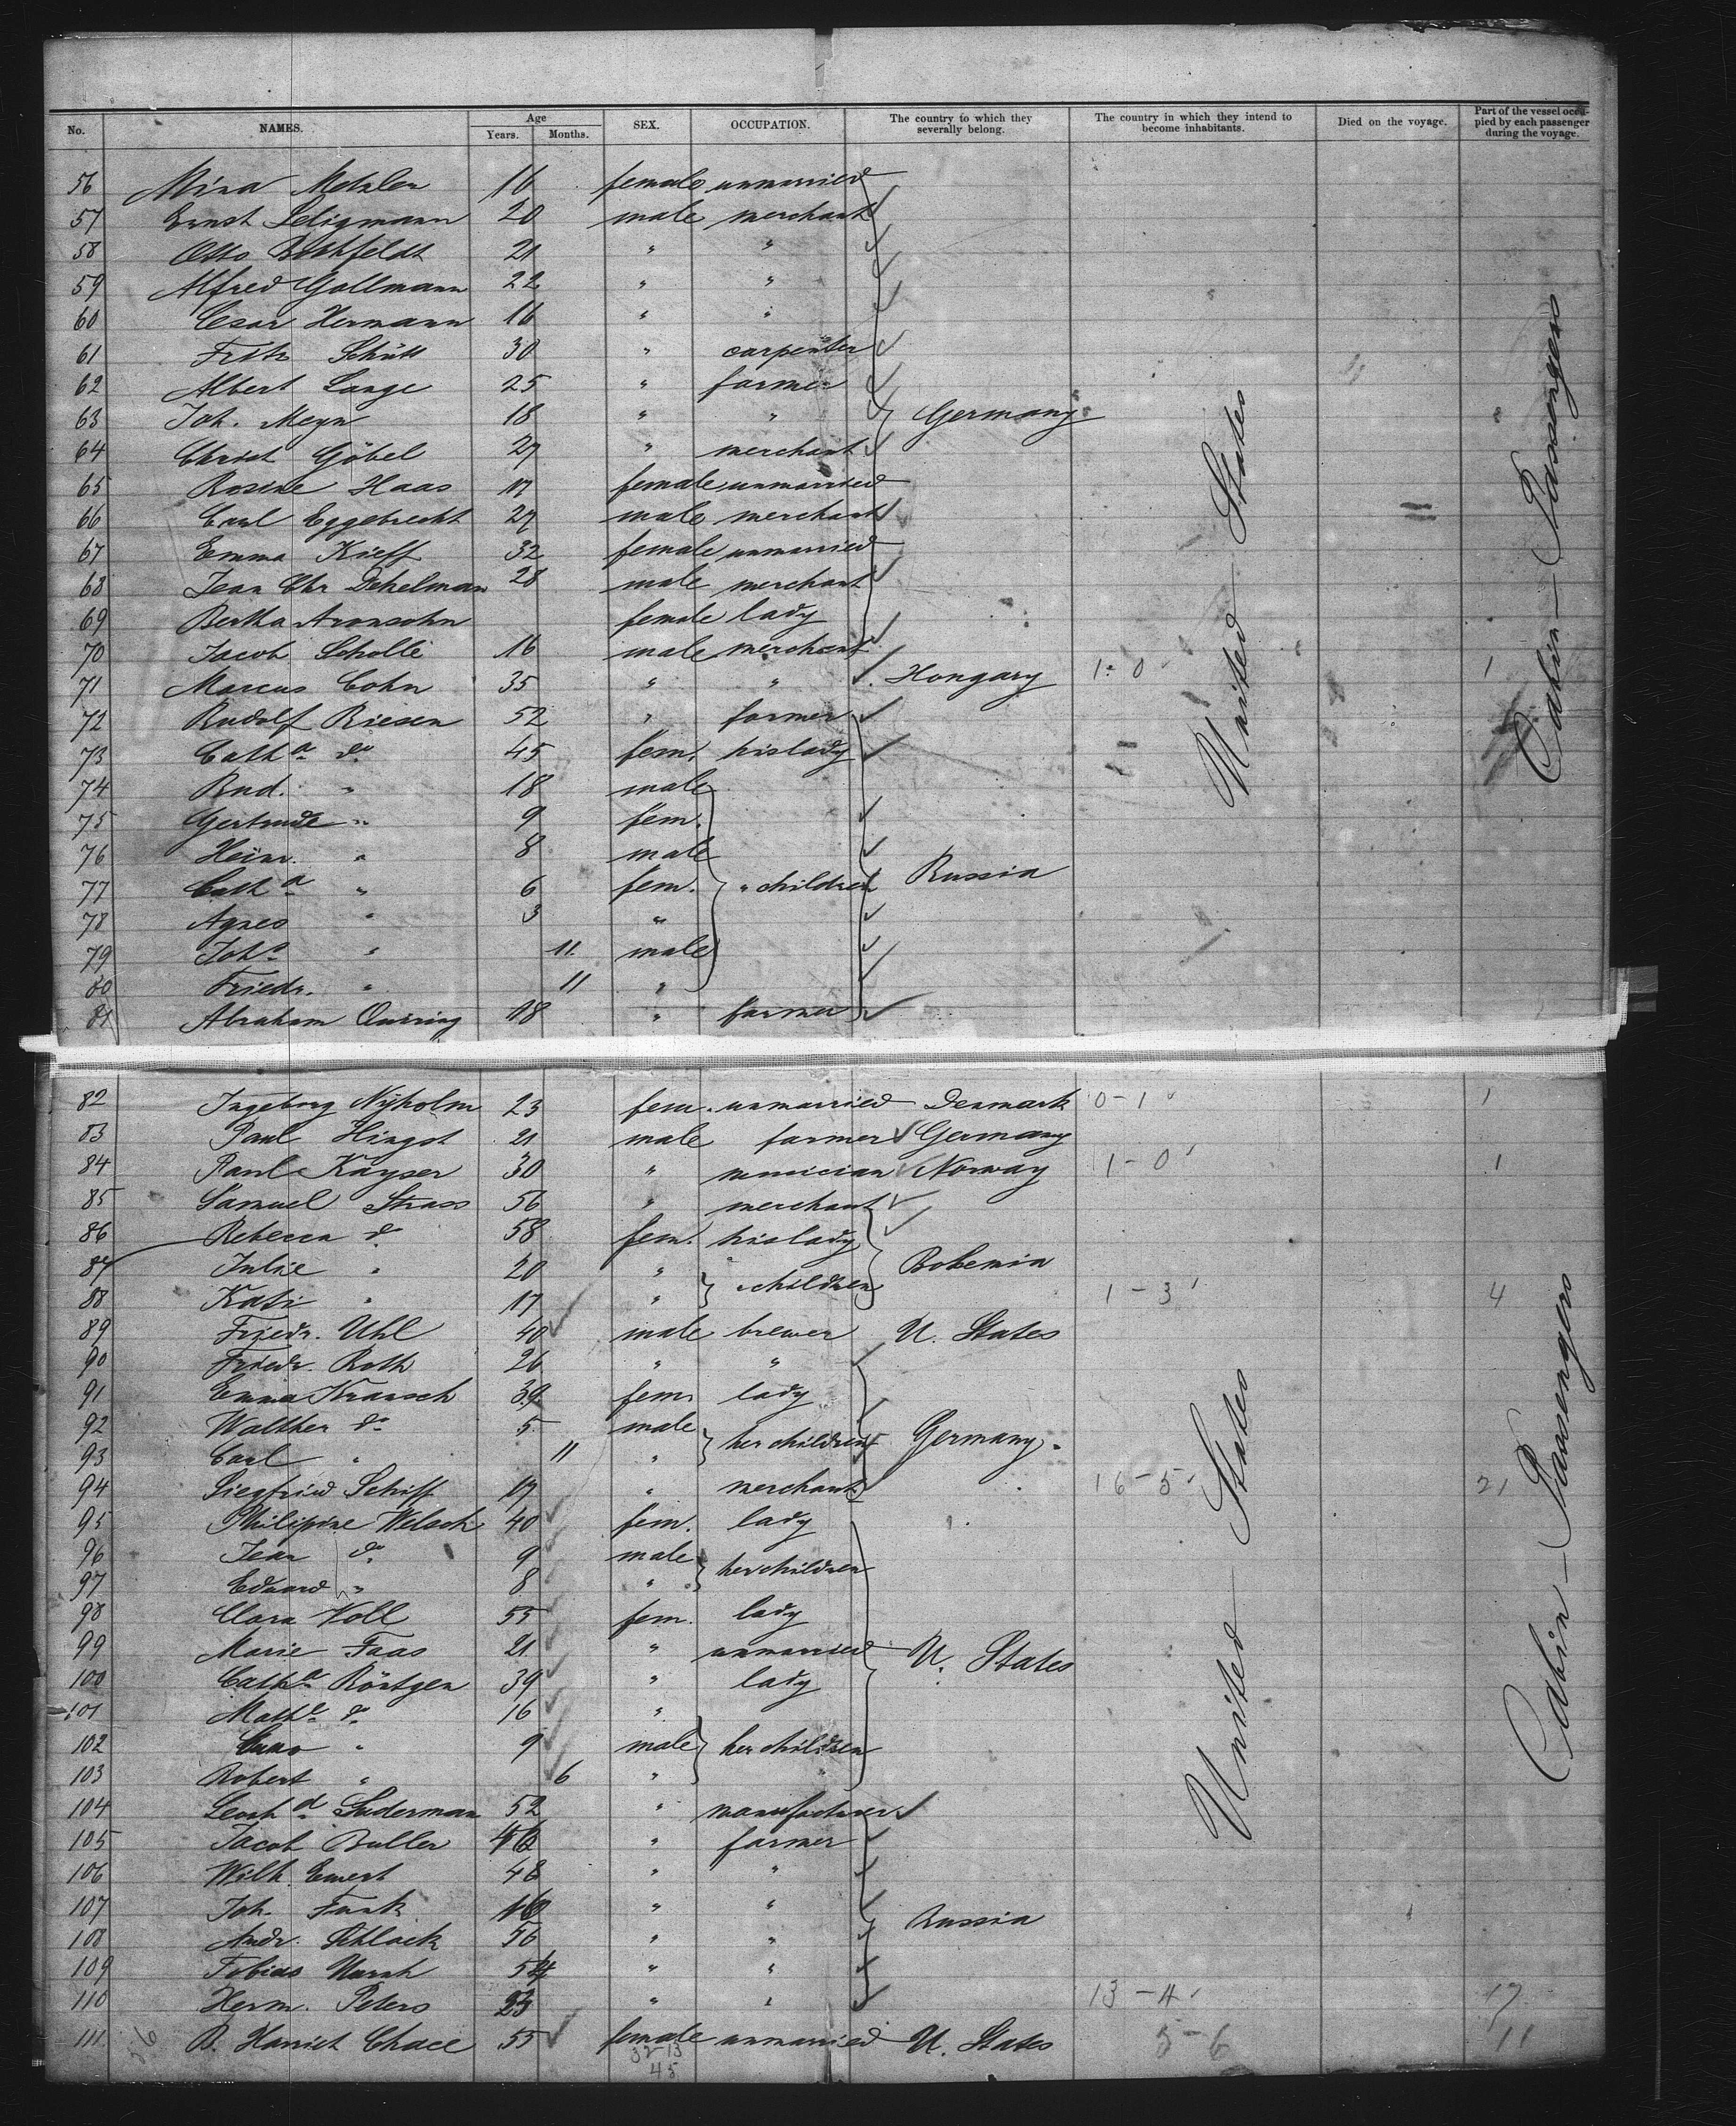 No. NAMES. Age Years. Months. SEX. OCCUPATION. The country to which they severally belong. The country in which they intend to become inhabitants. Died on the voyage. Part of the vessel occupied by each passenger during the voyage.
56 Mina Metzler 16 female unmarried
57 Ernst Seligmann 20 male merchant
58 Otto 21 " "
59 Alfred Gollmann 22 " "
60 Cesar Hermann 16 " "
61 Fritz Schütt 30 " carpenter
62 Albert Lange 25 " farmer
63 Joh. Meyn 18 " " Germany
64 Christ Göbel 27 " merchant
65 Rosine Haas 17 female unmarried
66 Carl Eggebrecht 27 male merchant
67 Emma Kieff 32 female unmarried
68 Jean Chr Dehelman 28 male merchant
69 Bertha Aronsohn female lady
70 Jacob Scholle 16 male merchant
71 Marcus Cohn 35 " " Hongary 1-0 1
72 Rudolf Riesen 52 " farmer
73 Cath.a do 45 fem. his lady
74 Rud. " 18 male
75 Gertrude " 9 fem.
76 Heinr. " 8 male
77 Cath.a " 6 fem. " children Russia
78 Agnes " 3 "
79 Joh.s " 11. male
80 Friedr. " 11 "
81 Abraham Quiring 18 " farmer
United States
Cabin-Passengers
82 Ingeborg Nyholm 23 fem. unmarried Denmark 0-1 1
83 Paul Hingst 21 male farmer Germany
84 Paul Kayser 30 " musician Norway 1-0 1
85 Samuel Strass 56 " merchant
86 Rebecca do 58 fem. his lady
87 Julie " 20 " Bohemia
88 Kati " 17 " " children 1-3 4
89 Friedr. Uhl 40 male brewer U. States
90 Friedr. Roth 26 " "
91 Emma Krausch 39 fem. lady
92 Walther do 5 male
93 Carl " 11 " her children Germany.
94 Siegfried Schiff 17 " merchant 16-5 21
95 Philipine Welsch 40 fem. lady
96 Jean do 9 male
97 Eduard " 8 " her children
98 Clara Voll 55 fem. lady
99 Marie Faas 21 " unmarried U. States
100 Cath.a Röntgen 39 " lady
101 Math.e do 16 "
102 Cuno " 9 male her children
103 Robert " 6 "
104 Leonh.d Suderman 52 " manufacturer
105 Jacob Buller 46 " farmer
106 Wilh. Ewert 48 " "
107 Joh. Funk 16 " " Russia
108 Andr. Schlack 56 " "
109 Tobias Unruh 54 " "
110 Herm. Peters 23 " " 13-4 17
111 B. Harriet Chace 55 female unmarried U. States 5-6 11
United States
Cabin-Passengers
56
32-13
45